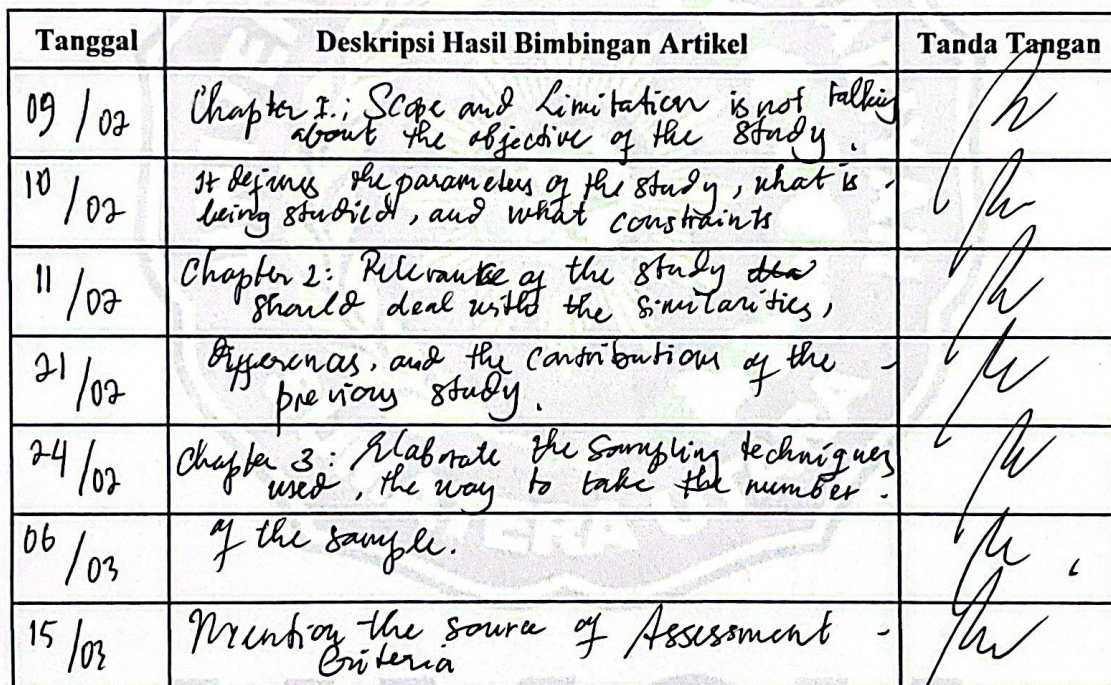 Tanggal Deskripsi Hasil Bimbingan Artikel Tanda Tangan
09/02 Chapter I.; Scope and Limitation is not talking
about the objective of the study.
10/02 It defines the parameters of the study, what is -
being studied, and what constraints
11/02 Chapter 2: Relevance of the study
should deal with the similarities,
21/02 Differences, and the contributions of the -
previous study.
24/02 Chapter 3: Elaborate the Sampling techniques
used, the way to take the number -
06/03 of the sample.
15/03 Mention the source of Assessment -
Criteria